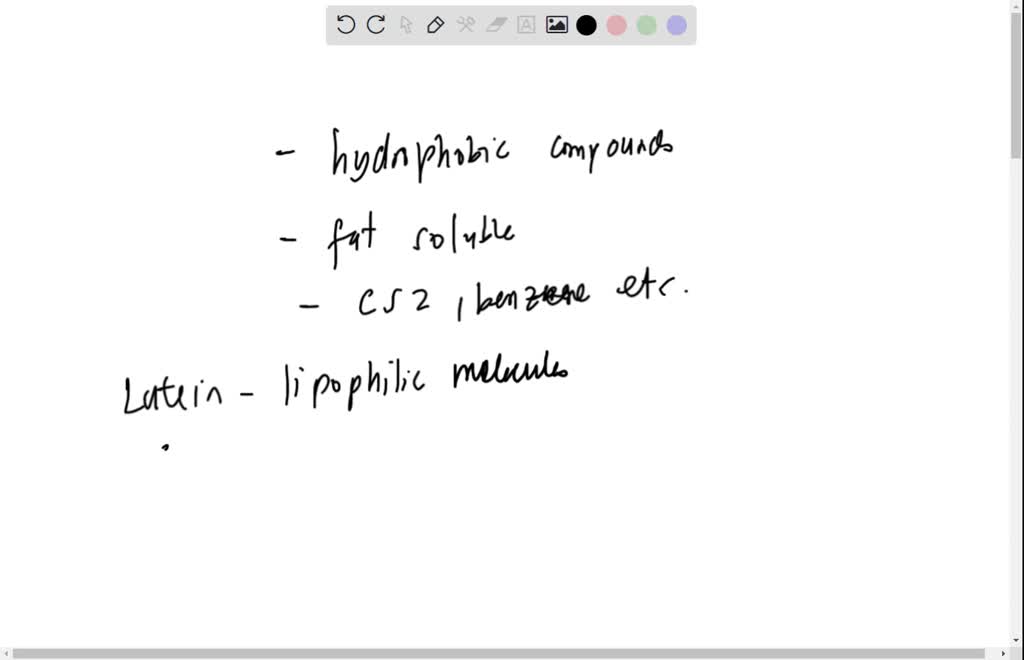 - hydrophobic compounds
- fat soluble
- CS2, benzene etc.
Lutein - lipophilic molecules